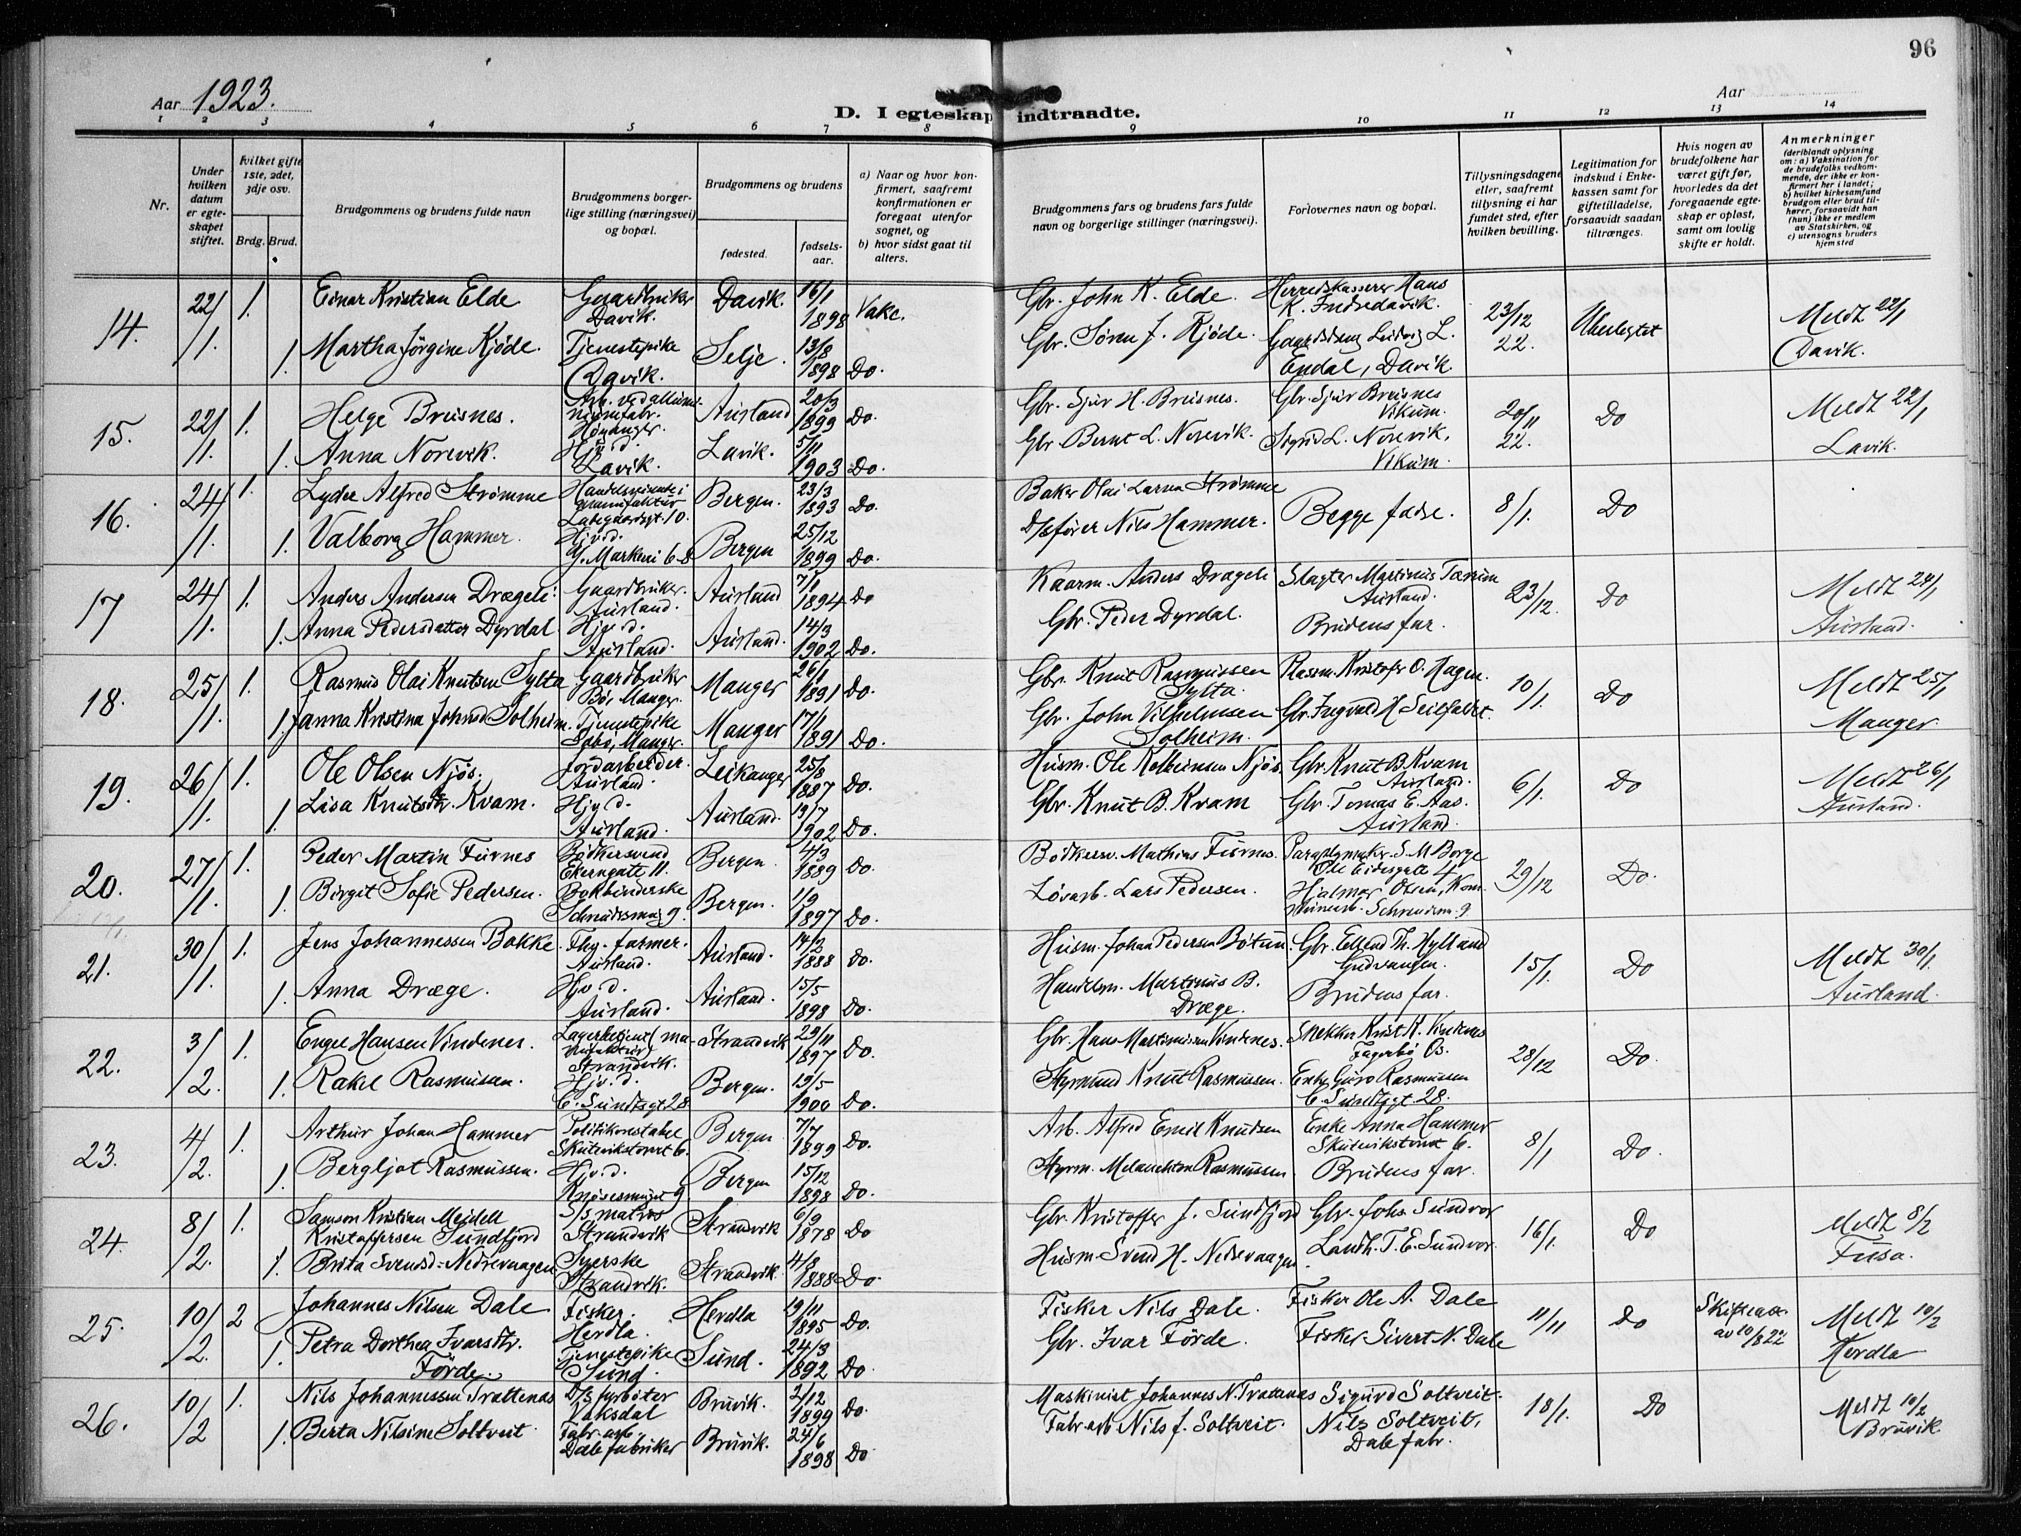 96
Aar 1923.
Aar
D. I egteskap indtraadte.
1 2 3 4 5 6 7 8 9 10 11 12 13 14
Nr.
Under hvilken datum er egteskapet stiftet.
hvilket gifte 1ste, 2det, 3dje osv.
Brdg. Brud.
Brudgommens og brudens fulde navn
Brudgommens borgerlige stilling (næringsvei) og bopæl.
Brudgommens og brudens
fødested. fødselsaar.
a) Naar og hvor konfirmert, saafremt konfirmationen er foregaat utenfor sognet, og
b) hvor sidst gaat til alters.
Brudgommens fars og brudens fars fulde navn og borgerlige stillinger (næringsvei).
Forlovernes navn og bopæl.
Tillysningsdagene eller, saafremt tillysning ei har fundet sted, efter hvilken bevilling.
Legitimation for indskud i Enkekassen samt for giftetilladelse, forsaavidt saadan tiltrænges.
Hvis nogen av brudefolkene har været gift før, hvorledes da det foregaaende egteskap er opløst, samt om lovlig skifte er holdt.
Anmerkninger
(deriblandt oplysning om: a) Vaksination for de brudefolks vedkommende, der ikke er konfirmert her i landet; b) hvilket kirkesamfund brudgom eller brud tilhører, forsaavidt han (hun) ikke er medlem av Statskirken, og c) utensogns bruders hjemsted
14. 22/1. 1. Einar Kristian Elde Gaardbruker Davik. Davik. 16/1 1898 Vakc. Gbr. John K. Elde. Herredskasserer Hans K. Indredavik. 23/12 22. Meldt 22/1 Davik.
1. Martha Jörgine Kjöde. Tjenestepike Davik. Selje 13/8 1898 Do. Gbr. Sören J. Kjöde. Gaardsdreng Ludvig L. Endal, Davik
15. 22/1. 1. Helge Breisnes. Höyanger Aurland 20/3 1899 Do. Gbr. Sjur H. Breisnes. Gbr. Sjur Breisnes Vikum. 20/11 22. Do Meldt 22/1 Lavik.
1. Anna Norevik. Hjv. d. Lavik. Lavik. 5/11 1903 Do. Gbr. Bernt L. Norevik. Sigrid L. Norevik, Vikum.
16. 24/1. 1. Lyder Alfred Strömme Ladegaardsgt. 10. Bergen. 23/3 1893 Do. Baker Olai Larsen Strömme Begge fædre. 8/1. Do
1. Valborg Hammer. Hjv. d. Y. Markevei 6 B Bergen 25/12 1899 Do. D/sförer Nils Hammer.
17 24/1. 1. Anders Andersen Drægeli. Gaardbruker. Aurland. Aurland 7/1 1894 Do Kaarm. Anders Drægeli Slagter Martinus Tærum Aurland. 23/12. Do Meldt 24/1 Aurland.
1. Anna Pedersdatter Dyrdal Hjv. d. Aurland. Aurland. 14/3 1902 Do. Gbr. Peder Dyrdal. Brudens far.
18. 25/1. 1. Rasmus Olai Knutsen Sylta Gaardbruker Bö, Manger Manger 26/1 1891 Do. Gbr. Knut Rasmussen Sylta. Rasm. Kristofer O. Hagen. 10/1. Do Meldt 25/1 Manger.
1. Janna Kristina Johnsd. Solheim. Tjenestepike Manger. Manger 17/1 1891 Do. Gbr. John Vilhelmsen Solheim. Gbr. Ingvald H. Seilfaldet.
19. 26/1. 1. Ole Olsen Njös. Jordarbeider. Aurland. Leikanger 25/8 1887 Do. Husm. Ole Kolbeinsen Njös. Gbr. Knut B. Kvam Aurland. 6/1. Do Meldt 26/1 Aurland.
1. Lisa Knutsdtr. Kvam. Hjv. d. Aurland. Aurland. 13/7 1902 Do. Gbr. Knut B. Kvam Gbr. Tomas E. Aas. Aurland.
20. 27/1. 1. Peder Martin Furnes Bödkersvend Ekerngate 11. Bergen. 4/3 1889 Do. Bödkersv. Mathias Furnes. Paraplymaker S. M. Borge 29/12 Do.
1. Birgit Sofie Pedersen. Bokbinderske Schreudersmug 9. Bergen. 1/9 1897 Do. Lösarb. Lars Pedersen. Hjalmar Olsen, Kom. Schreudersm. 9.
21. 30/1. 1. Jens Johannessen Bakke. Fhv. farmer. Aurland. Aurland. 14/2 1888 Do. Husm. Johan Pedersen Bötun. Gbr. Ellend Th. Hylland Gudvangen. 15/1. Do Meldt 30/1. Aurland.
1. Anna Dræge. Hjv. d. Aurland. Aurland. 15/5 1898 Do. Handelsm. Martinus B. Dræge. Brudens far.
22. 3/2. 1. Engel Hansen Vindenes. Strandvik. Strandvik 29/11 1897 Do. Gbr. Hans Mathiassen Vindenes. Snekker Krist. K. Vindenes Fagerbö Os. 28/12 Do.
1. Rakel Rasmussen. Hjv. d. C. Sundtsgt 28 Bergen. 19/5 1900 Do. Styrmand Knut Rasmussen. Enke Guro Rasmussen C. Sundtsgt. 28.
23. 4/2. 1. Arthur Johan Hammer Politikonstabel Skuteviktorvet 6. Bergen 7/7 1899 Do. Arb. Alfred Emil Knudsen Enke Anna Hammer Skuteviktorvet 6. 8/1 Do.
1. Bergljot Rasmussen. Hjv. d. Knösesmuget 9. Bergen 15/12 1898 Do. Styrm. Melanchton Rasmussen Brudens far.
24. 8/2. 1. Samson Kristian Meidell Kristoffersen Sundfjord S/s matros Strandvik Strandvik 6/9 1878 Do Gbr. Kristoffer J. Sundfjord Gbr. Johs. Sundvor 16/1. Do Meldt 8/2 Fusa.
1. Brita Svendsd. Nedrevaagen Syerske Strandvik. Strandvik. 4/8 1888 Do. Husm. Svend H. Nedrevaagen Landh. T. E. Sundvor.
25. 10/2. 2 Johannes Nilsen Dale Fisker. Herdla. Herdla 19/11 1895 Do. Fisker Nils Dale. Fisker Ole A. Dale 11/11 Do Skifteatt. av 10/8 22 Meldt 10/2 Herdla
1. Petra Dorthea Ivarsdtr. Förde. Tjenestepike Sund. Sund. 24/3 1892 Do Gbr. Ivar Förde. Fisker Sivert N. Dale
26. 10/2 1. Nils Johannessen Trættenæs D/s fyrböter Vaksdal Bruvik. 2/12 1899 Do. Maskinist Johannes N. Trættenæs Sigurd Soltveit. 18/1. Do Meldt 10/2 Bruvik
1. Berta Nilsine Soltveit Fabr. arb. Dale fabriker Bruvik. 24/6 1898 Do Fabr. arb. Nils J. Soltveit. Nils Soltveit, Dale fabr.